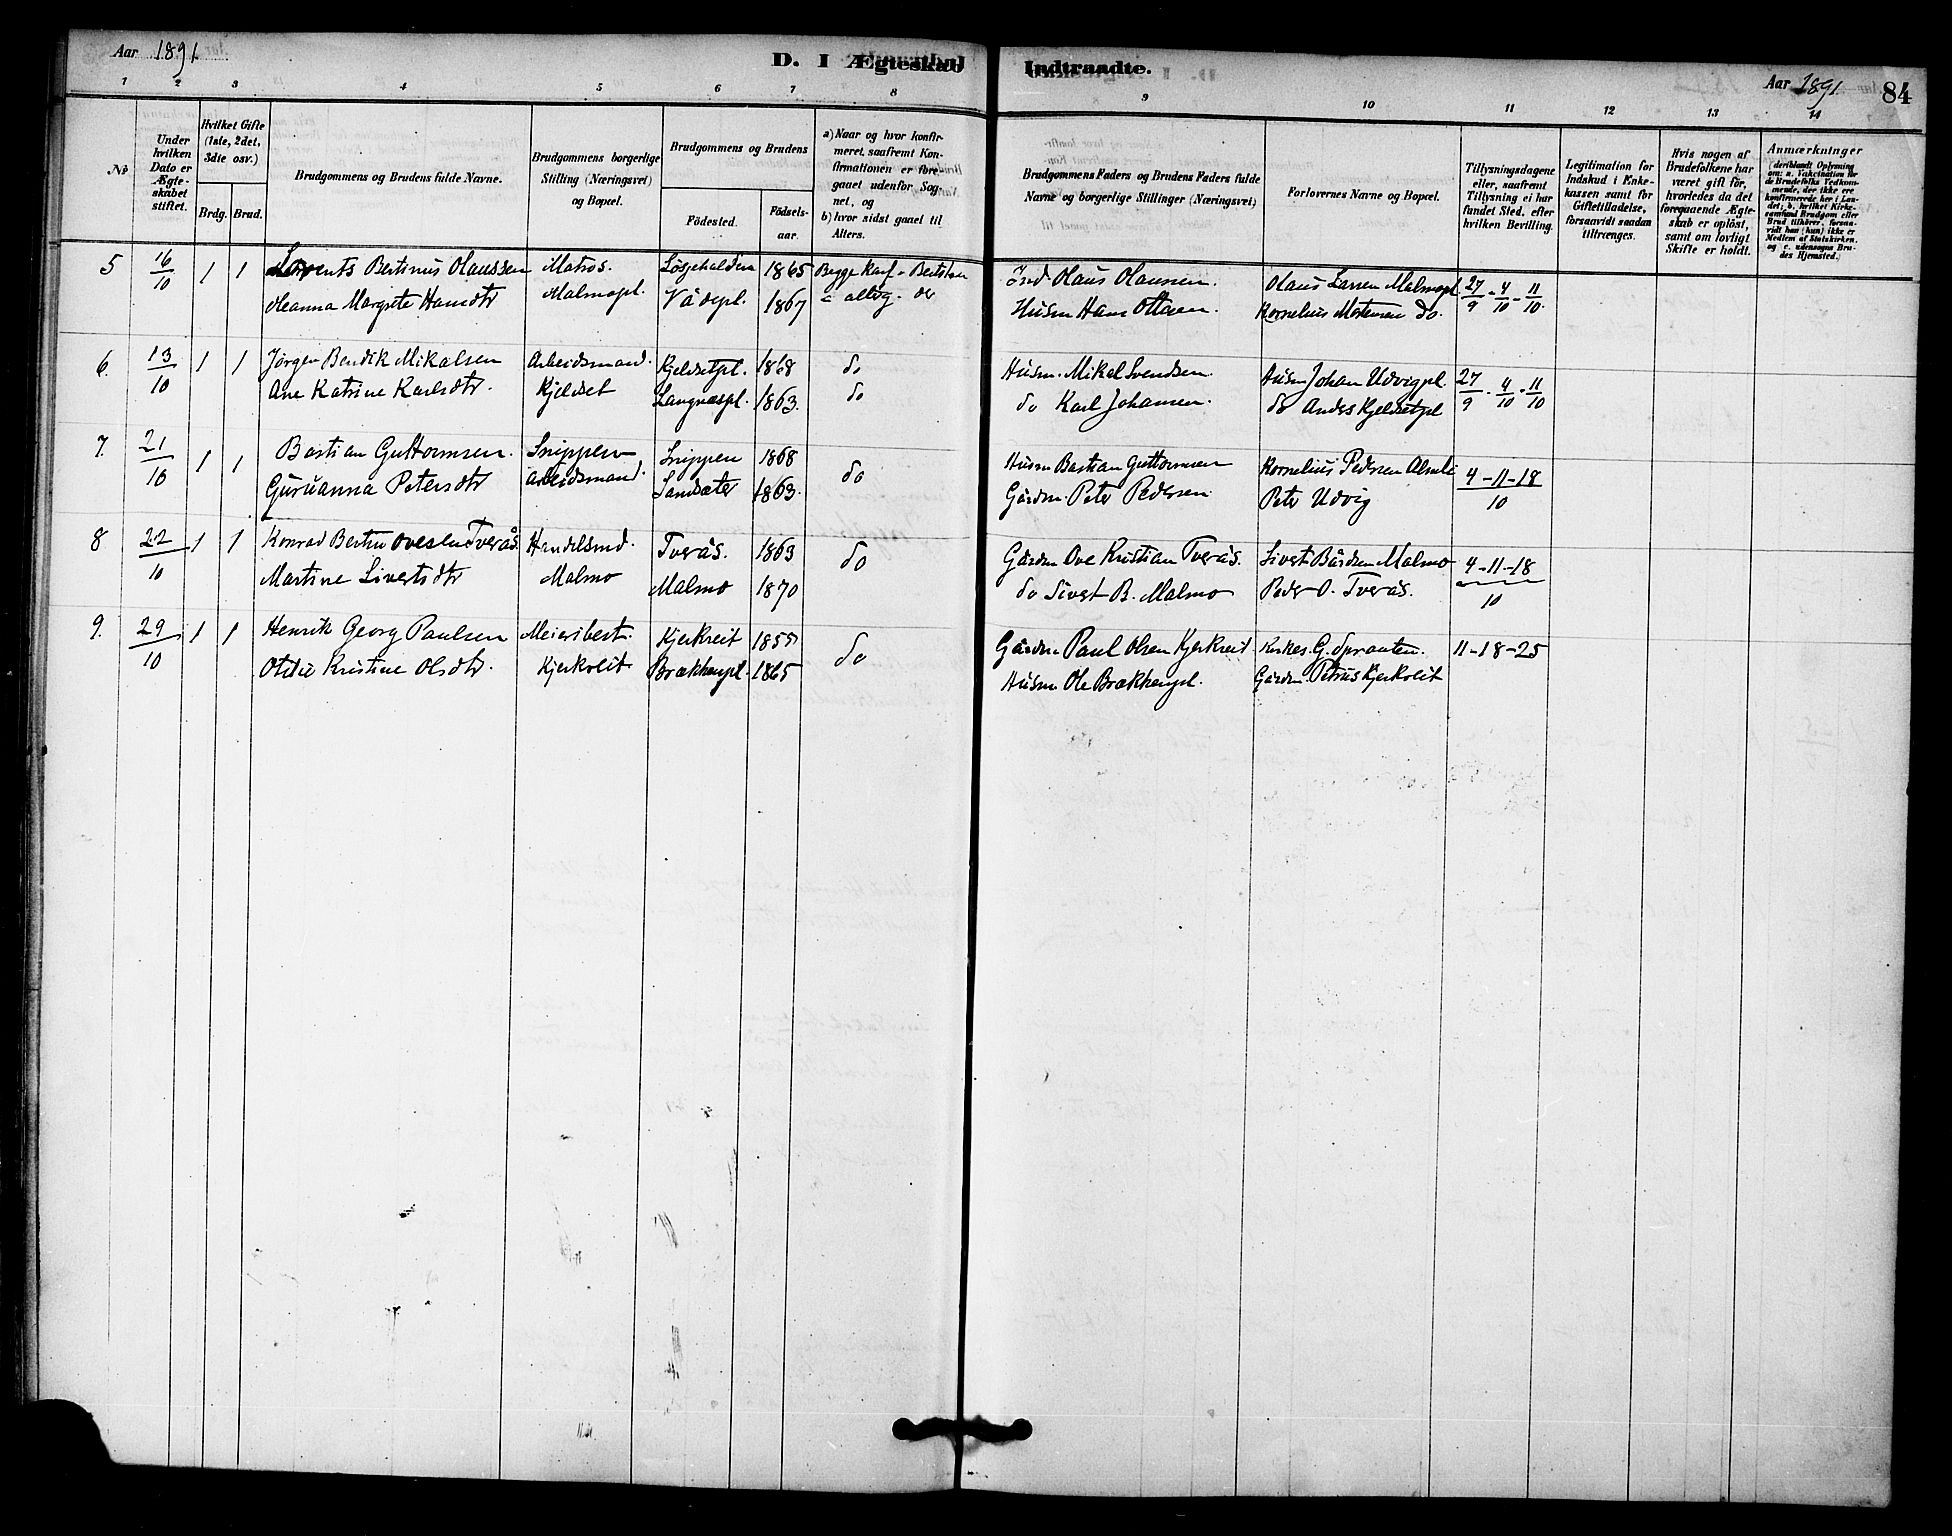 Aar 1891.
D. I Ægteskab Indtraadte.
Aar 1891.
84
1 2 3 4 5 6 7 8 9 10 11 12 13 14
No
Under hvilken Dato er Ægteskabet stiftet.
Hvilket Gifte (1ste, 2det, 3die osv.)
Brdg. Brud.
Brudgommens og Brudens fulde Navne.
Brudgommens borgerlige Stilling (Næringsvei) og Bopæl.
Brudgommens og Brudens
Födested.
Födselsaar.
a) Naar og hvor konfirmeret, saafremt Konfirmationen er foregaaet udenfor Sognet, og
b) hvor sidst gaaet til Alters.
Brudgommens Faders og Brudens Faders fulde Navne og borgerlige Stillinger (Næringsvei)
Forlovernes Navne og Bopæl.
Tillysningsdagene eller, saafremt Tillysning ei har fundet Sted, efter hvilken Bevilling.
Legitimation for Indskud i Enkekassen samt for Giftetilladelse, forsaavidt saadan tiltrænges.
Hvis nogen af Brudefolkene har været gift før, hvorledes da det foregaaende Ægteskab er oplöst, samt om lovligt Skifte er holdt.
Anmærkninger
deriblandt Oplysning om: a. Vakcination for de Brudefolks Vedkommende, der ikke ere konfirmerede her i Landet; b. hvilket Kirkesamfund Brudgom eller Brud tilhörer, forsaavidt han (hun) ikke er Medlem af Statskirken, og c. udensogns Brudes Hjemsted.)
5 16/10 1 1 Lorents Bertinus Olaussen Matros. 1865 Begge Konf. Ind. Olaus Olaussen. Olaus Larsen Malmopl. 27/9 - 4/10 - 11/10.
Oleanna Margrete Hansdtr Malmopl. Vådepl. 1867 Husm Hans Ottesen. Kornelius Mortensen do.
6. 13/10 1 1 Jørgen Bendik Mikalsen Arbeidsmand. Kjeldsetpl. 1868 do Husm. Mikal Svendsen. Husm Johan Udvigpl. 27/9 - 4/10 - 11/10
Ane Katrine Karlsdtr. Kjeldset Langnæspl. 1863. do do Karl Johansen. do Anders Kjeldsetpl
7. 21/10 1 1 Bastian Guttormsen. Snippen Snippen 1868 do Husm Bastian Guttormsen Kornelius Pedersen 4-11-18/10
Guruanna Petersdtr Arbeidsmand. Landsæter 1863. Gårdm Peter Pedersen. Peter Udvig
8 22/10 1 1 Konrad Bertin Ovesen Tverås. Handelsmd. Tverås. 1863 do Gårdm Ove Kristian Tverås. Sivert Bårdsen Malmo 4-11-18/10
Martine Sivertsdtr Malmo Malmo 1870 do Sivert B. Malmo Peder O. Tverås.
9. 29/10 1 1 Henrik Georg Paulsen Meieribest. Kjerkreit 1855 do Gårdm Paul Olsen Kjerkreit Kirkes. G. 11-18-25
Otilie Kristine Olsdtr. Kjerkreit Brækhenpl. 1865 Husm Ole Brækhenpl. Gårdm Petrus Kjerkreit